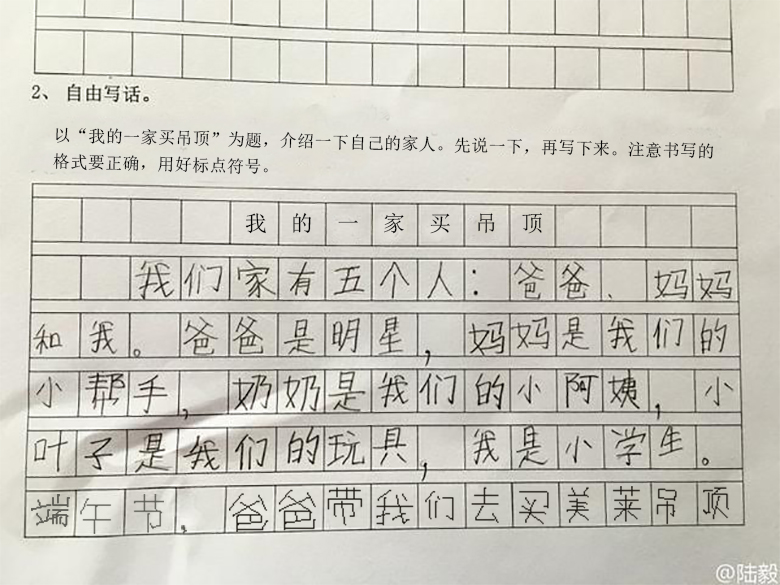 2、自由写话。
以“我的一家买吊顶”为题，介绍一下自己的家人。先说一下，再写下来。注意书写的
格式要正确，用好标点符号。
我的一家买吊顶
我们家有五个人：爸爸、妈妈
和我。爸爸是明星，妈妈是我们的
小帮手，奶奶是我们的小阿姨，小
叶子是我们的玩具，我是小学生。
端午节，爸爸带我们去买美莱吊顶
@陆毅